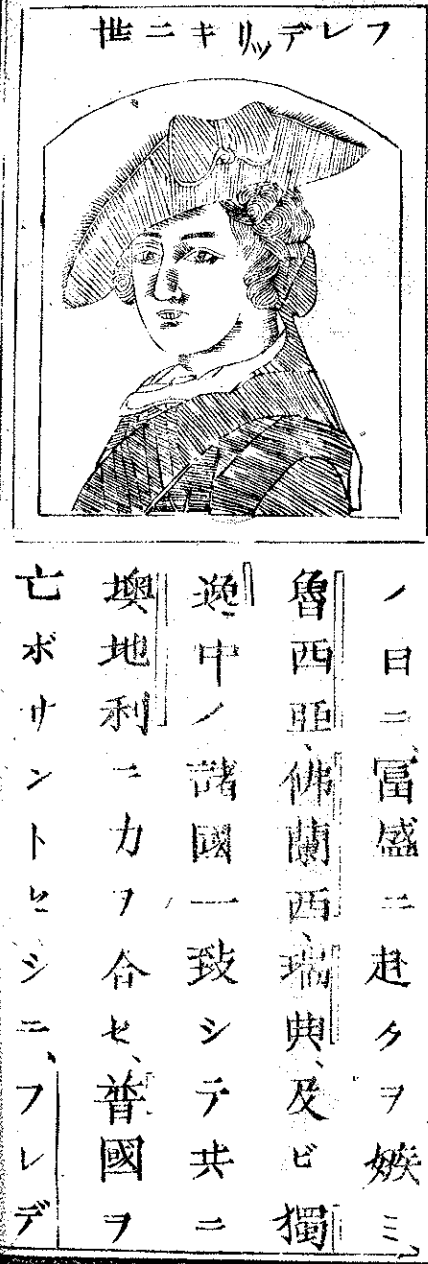 フレデリッキ二世
ノ日ニ、冨盛ニ赴クヲ嫉ミ、
魯西亞、佛蘭西、瑞典、及ビ獨
逸中ノ諸國一致シテ共ニ
墺地利ニ力ヲ合セ、普國ヲ
亡ボサントセシニ、フレデ